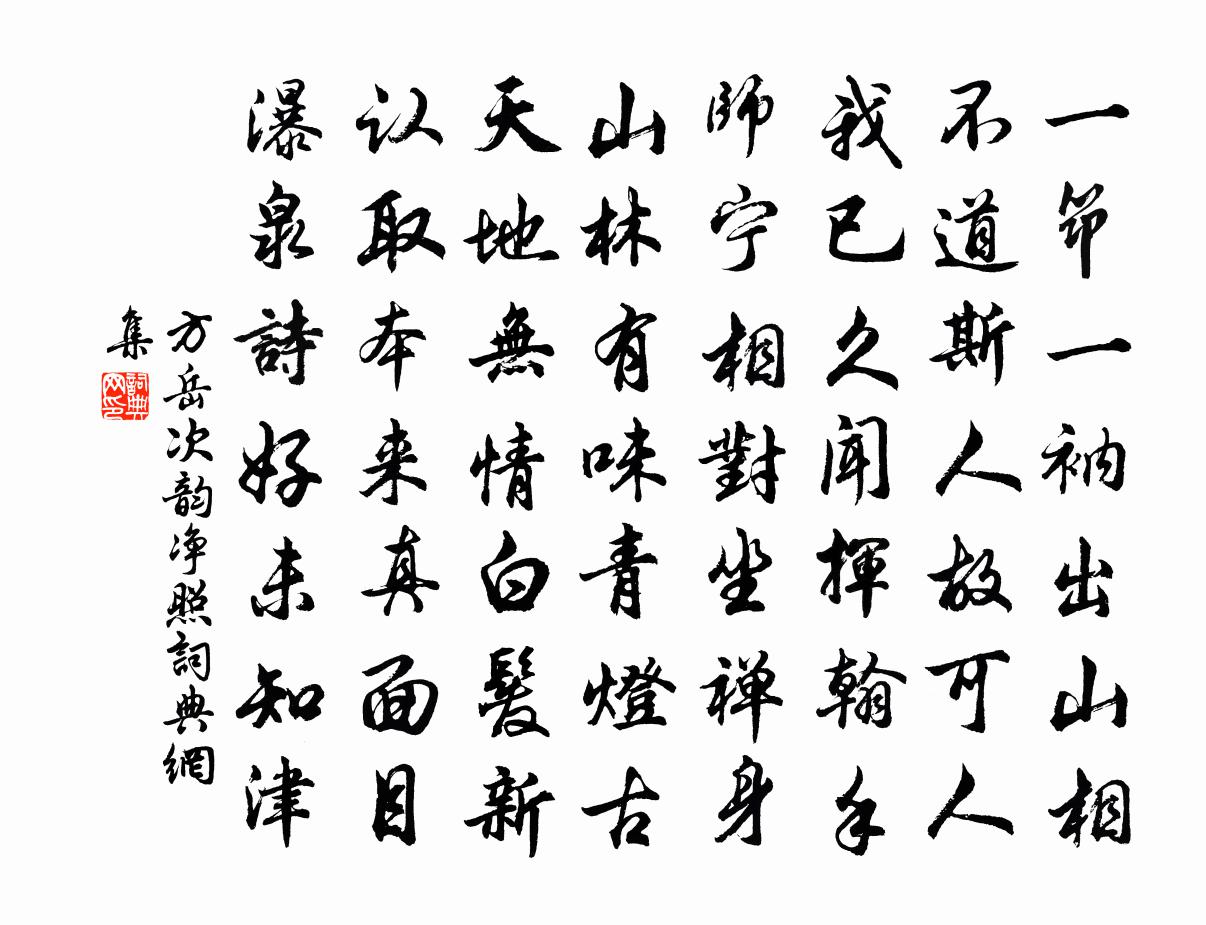 一笻一衲出山相
不道斯人故可人
我已久聞揮翰手
師宁相對坐禅身
山林有味青燈古
天地無情白髮新
认取本来真面目
瀑泉詩好未知津
方岳次韵净照詞典網
集
詞典网印